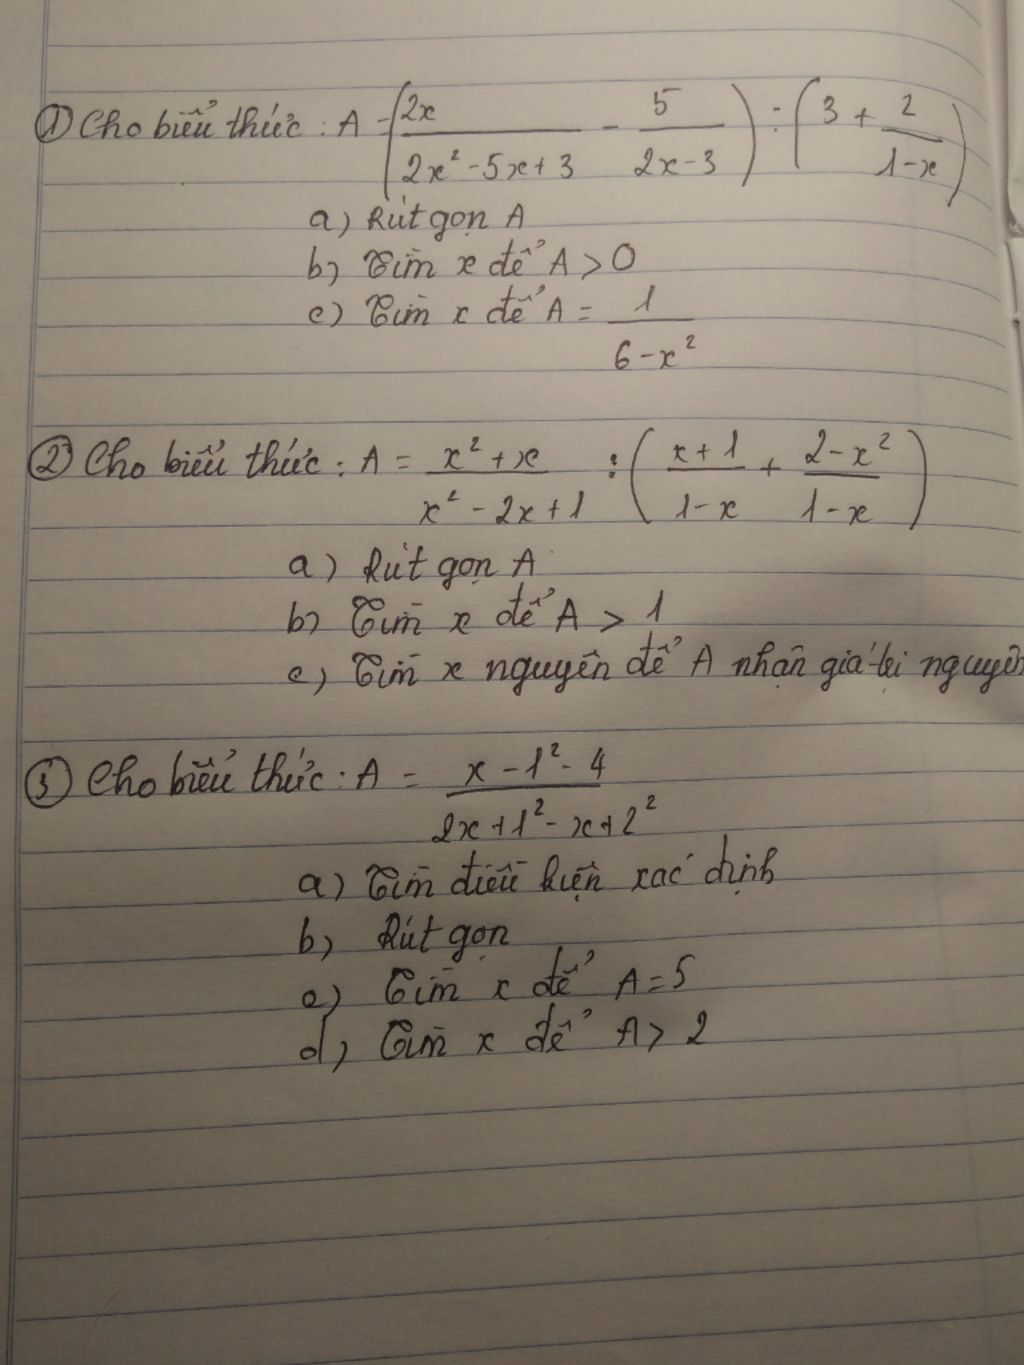 ① Cho biểu thức: A = (2x / (2x² - 5x + 3) - 5 / (2x - 3)) : (3 + 2 / (1 - x))
a) Rút gọn A
b) Tìm x để A > 0
c) Tìm x để A = 1 / (6 - x²)
② Cho biểu thức: A = (x² + x) / (x² - 2x + 1) : ((x + 1) / (1 - x) + (2 - x²) / (1 - x))
a) Rút gọn A
b) Tìm x để A > 1
c) Tìm x nguyên để A nhận giá trị nguyên
③ Cho biểu thức: A = (x - 1² - 4) / (2x + 1² - x + 2²)
a) Tìm điều kiện xác định
b) Rút gọn
c) Tìm x để A = 5
d) Tìm x để A > 2